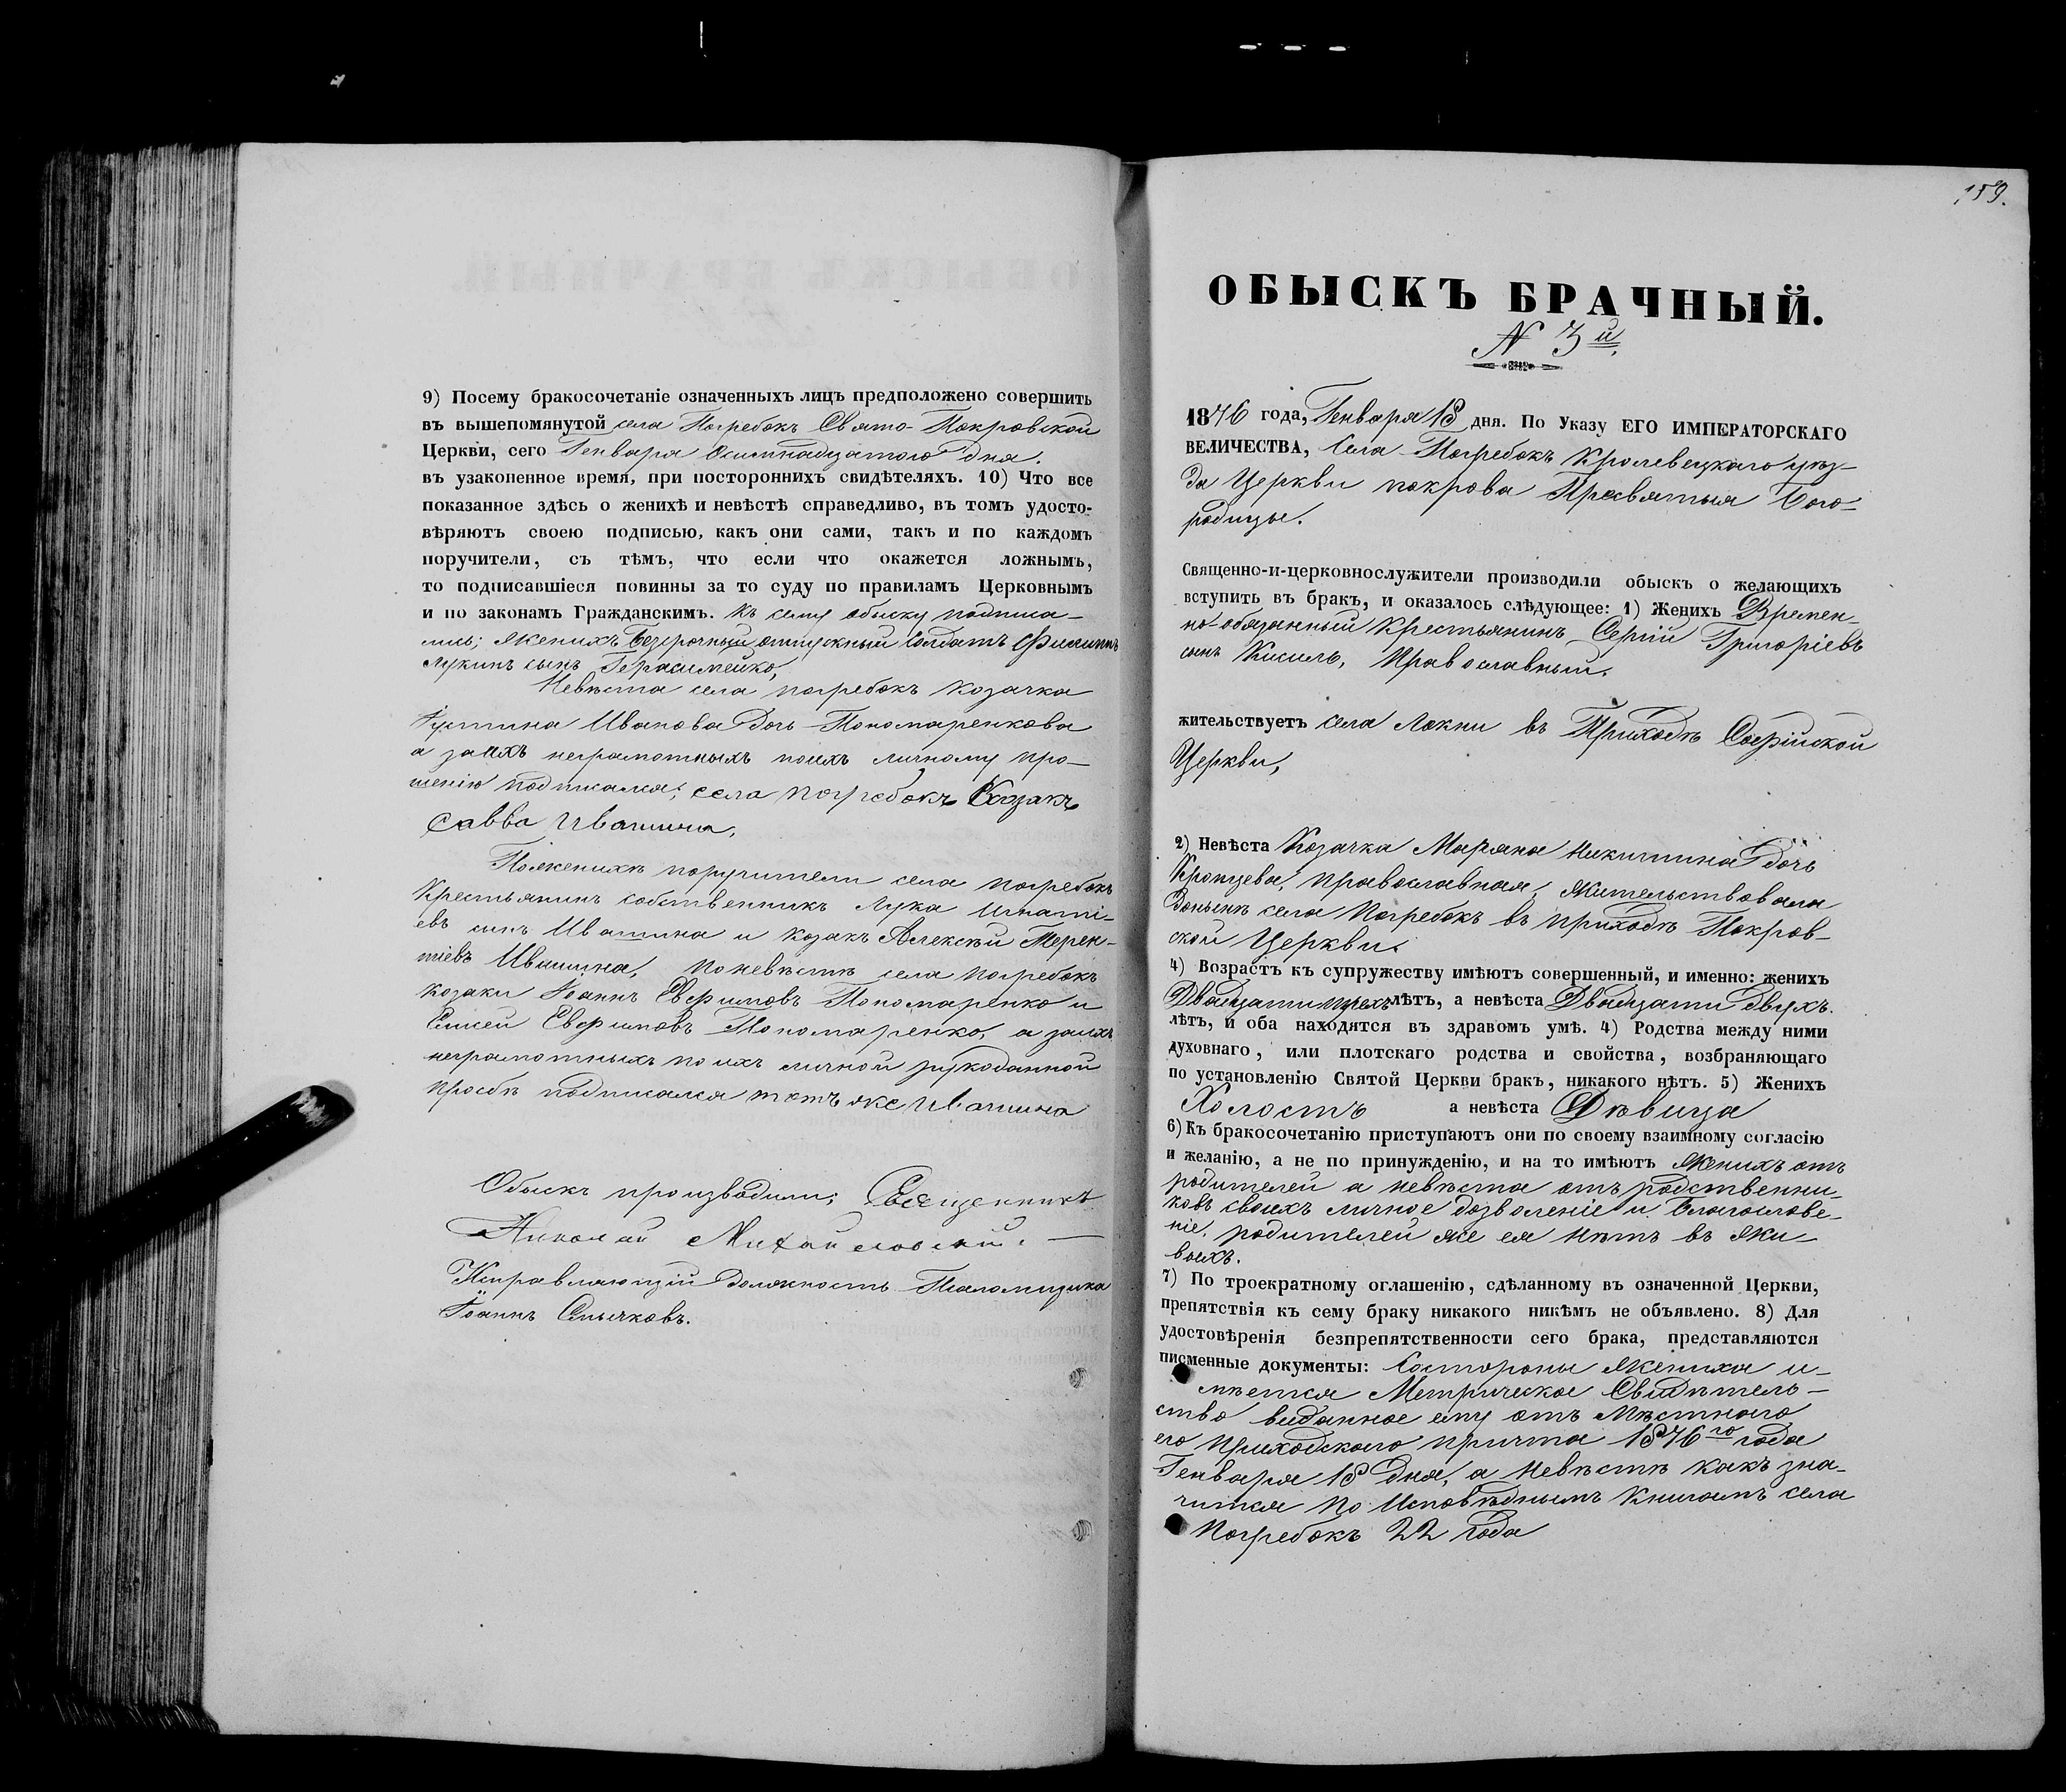 9) Посему бракосочетаніе означенныхъ лицъ предположено совершить
въ вышепомянутой села Погребокъ Свято-Покровской
Церкви, сего Генваря Осимнадцатого дня.
въ узаконенное время, при постороннихъ свидѣтеляхъ. 10) Что все
показанное здѣсь о женихѣ и невѣстѣ справедливо, въ томъ удосто-
вѣряютъ своею подписью, какъ они сами, такъ и по каждомъ
поручители, съ тѣмъ, что если что окажется ложнымъ,
то подписавшіеся повинны за то суду по правиламъ Церковнымъ
и по законамъ Гражданскимъ. Къ сему обыску подписа-
лись; Женихъ Безсрочный отпускный Солдатъ Филиппъ
Лукинъ сынъ Герасимейко,
Невѣста села погребокъ козачка
Іустина Иванова Дочь Пономаренкова
а заихъ неграмотныхъ поихъ личному про-
шенію подписался; села погребокъ Козакъ
Савва Ивашина,
Поженихѣ поручители села погребокъ
Крестьянинъ собственникъ Лука Игнаті-
евъ сынъ Ивашина и козакъ Алексѣй Терен-
тіевъ Ивашина, поневѣстѣ села погребокъ
козаки Іоаннъ Евфимовъ Пономаренко и
Елисей Евфимовъ Пономаренко, а заихъ
неграмотныхъ по ихъ личной рукоданной
просбѣ подписался тотъ же Ивашина
Обыскъ производили; Священникъ
Николай Михайловскій.
Исправляющій должность Псаломщика
Іоаннъ Смычковъ.
159.
ОБЫСКЪ БРАЧНЫЙ.
N 3й,
1876 года, Генваря 18 дня. По Указу ЕГО ИМПЕРАТОРСКАГО
ВЕЛИЧЕСТВА, Села Погребокъ Кролевецкаго уѣз-
да Церкви покрова Пресвятыя Бого-
родицы.
Священно-и-церковнослужители производили обыскъ о желающихъ
вступить въ бракъ, и оказалось слѣдующее: 1) Женихъ Времен-
но-обязанный Крестьянинъ Сергій Григоріевъ
сынъ Кисиль, Православный.
жительствуетъ села Локни въ Приходѣ Софійской
Церкви,
2) Невѣста Козачка Маряна Никитина Дочь
Кропцева, православная, жительствовала
Донынѣ села Погребокъ въ приходѣ Покров-
ской Церкви.
4) Возрастъ къ супружеству имѣютъ совершенный, и именно: женихъ
Двадцатитрехъ лѣтъ, а невѣста Двадцати двухъ.
лѣтъ, и оба находятся въ здравомъ умѣ. 4) Родства между ними
духовнаго, или плотскаго родства и свойства, возбраняющаго
по установленію Святой Церкви бракъ, никакого нѣтъ. 5) Женихъ
Холостъ а невѣста Дѣвица
6) Къ бракосочетанію приступаютъ они по своему взаимному согласію
и желанію, а не по принужденію, и на то имѣютъ Женихъ отъ
родителей а невѣста отъ родственни-
ковъ своихъ личное дозволеніе и благослове-
ніе, родителей же ея нѣтъ въ жи-
выхъ.
7) По троекратному оглашенію, сдѣланному въ означенной Церкви,
препятствія къ сему браку никакого никѣмъ не объявлено. 8) Для
удостовѣренія безпрепятственности сего брака, представляются
писменные документы: Состороны жениха и-
мѣется Метрическое Свидѣтель-
ство выданное ему отъ Мѣстного
его приходского причта 1876го года
Генваря 18 Дня, а Невѣстѣ какъ зна-
чится по Исповѣднымъ Книгамъ села
Погребокъ 22 года